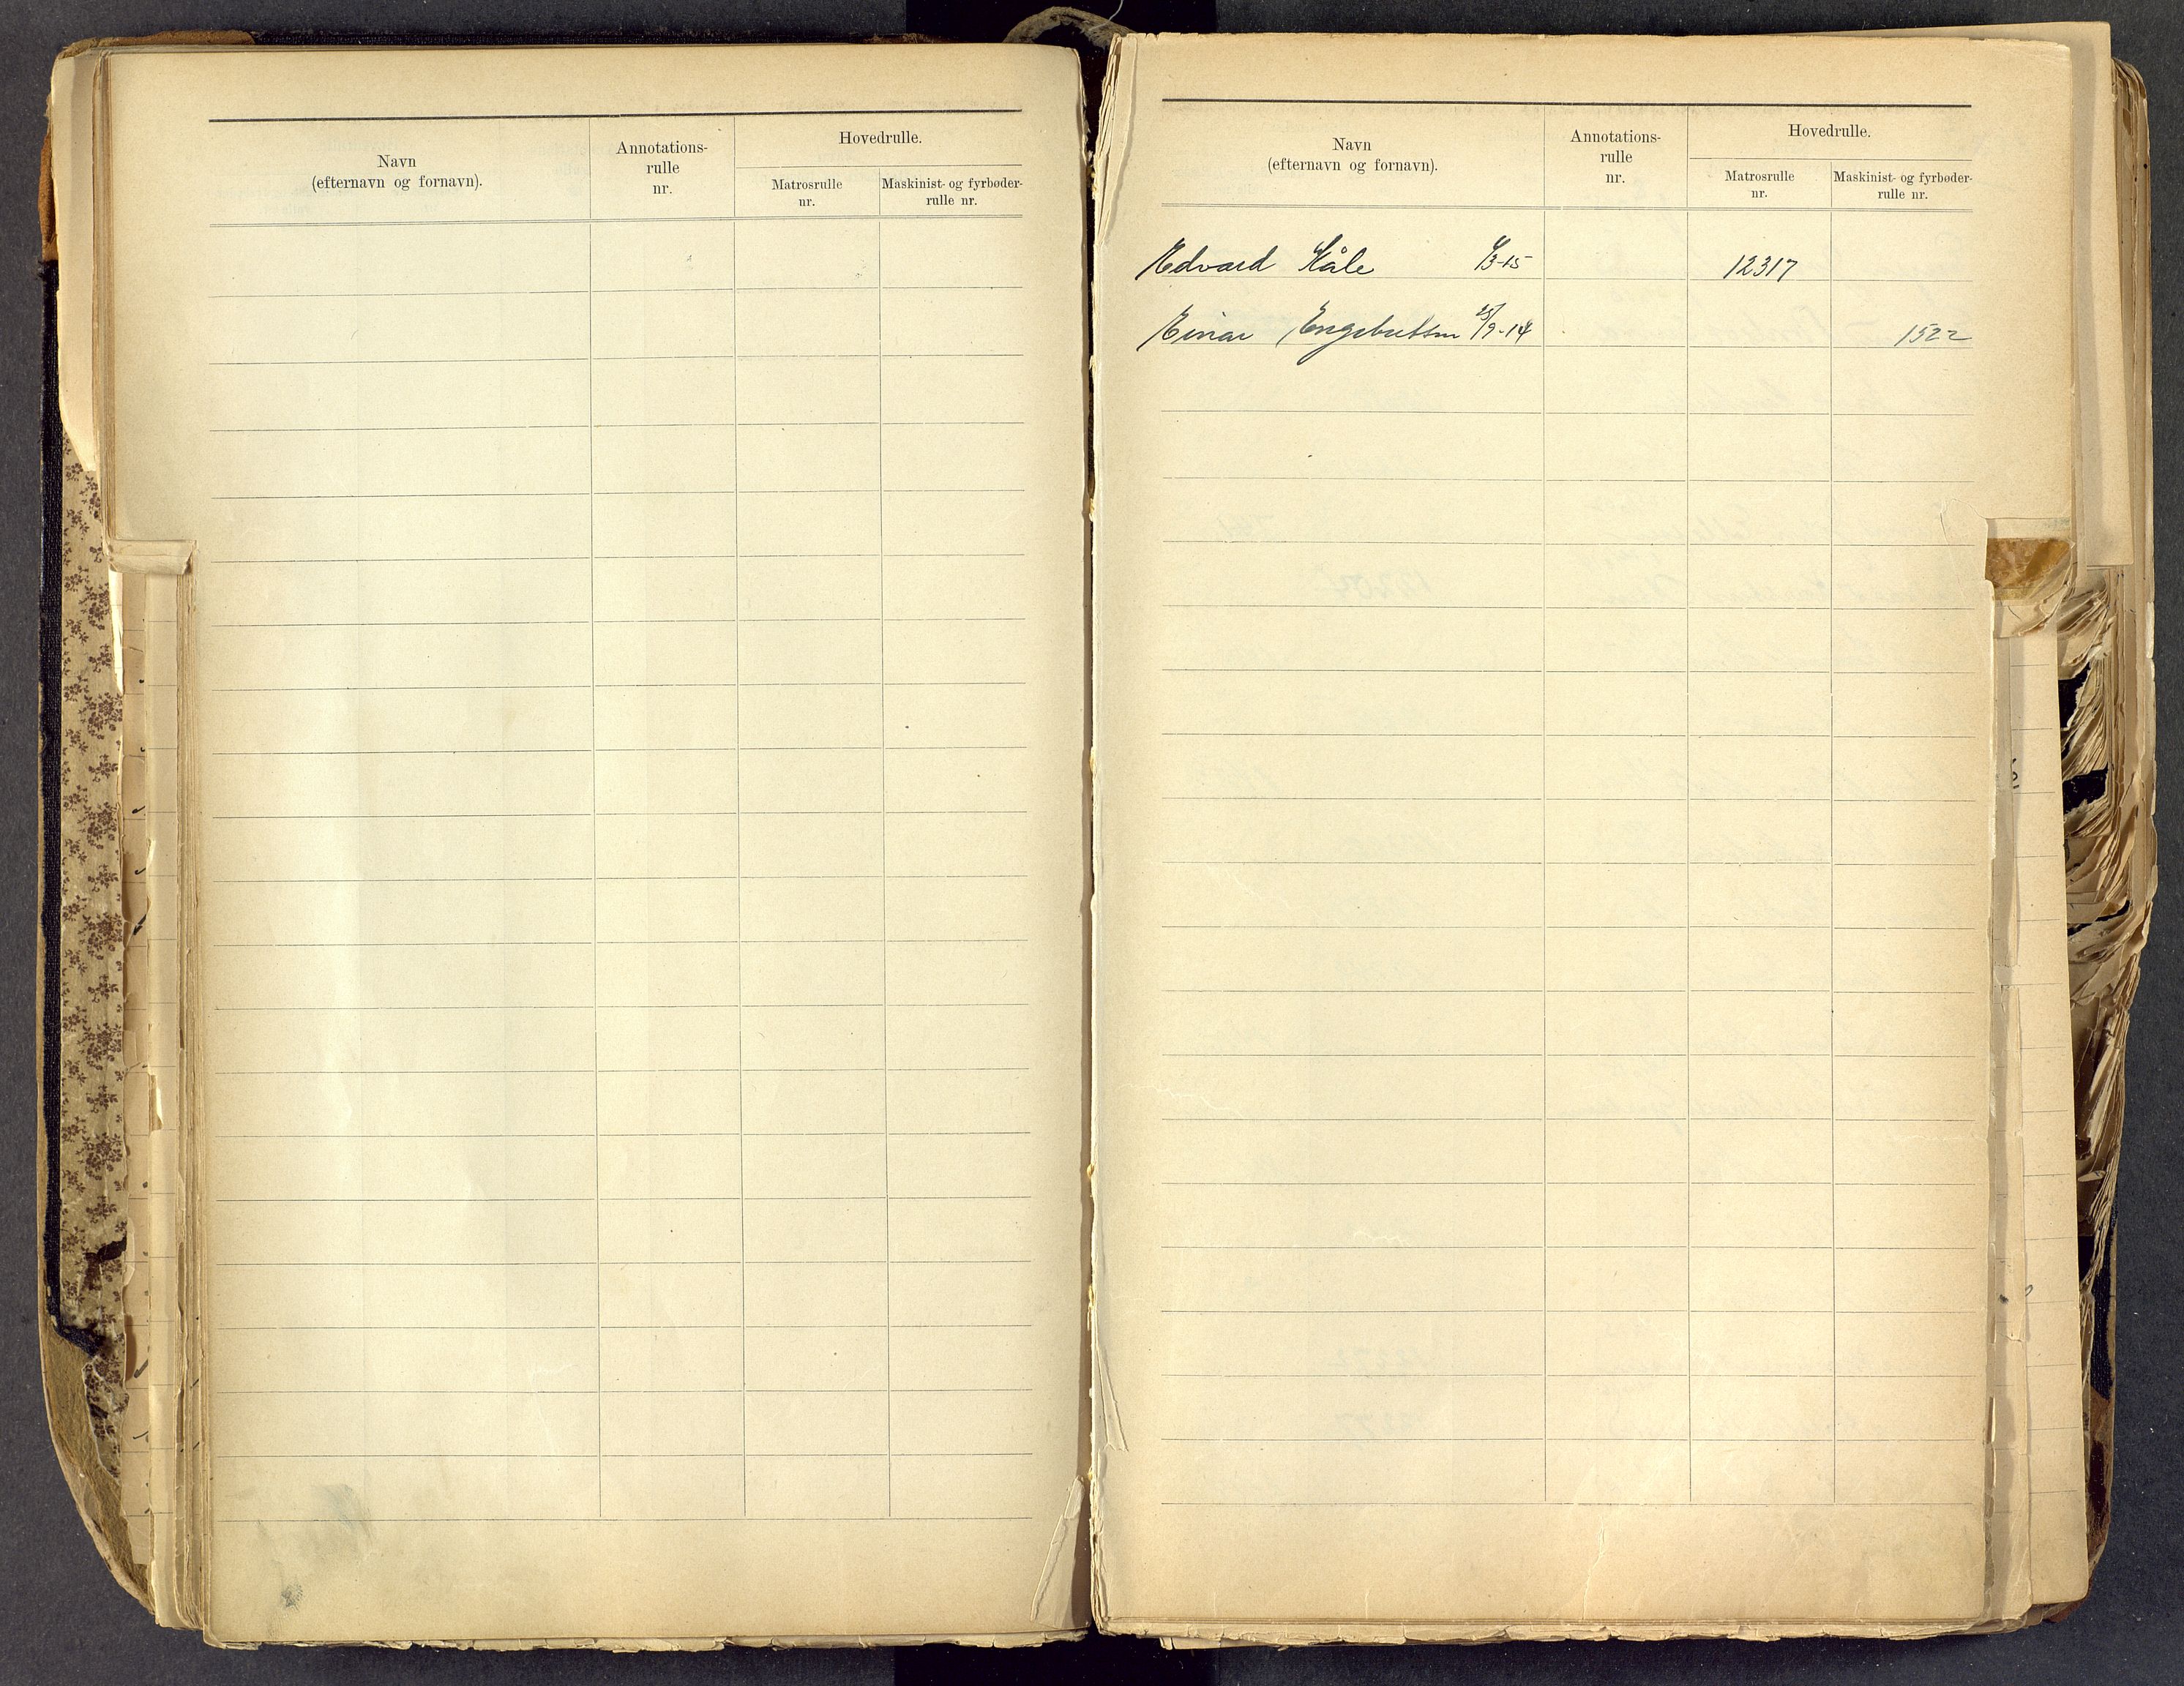 Navn
(efternavn og fornavn).
Annotations-
rulle
nr.
Hovedrulle.
Matrosrulle
nr.
Maskinist- og fyrbøder-
rulle nr.
Navn
(efternavn og fornavn).
Annotations-
rulle
nr.
Hovedrulle.
Matrosrulle
nr.
Maskinist- og fyrbøder-
rulle nr.
Edvard 3-15 12317
Einar Engebretsen 9-14 1522